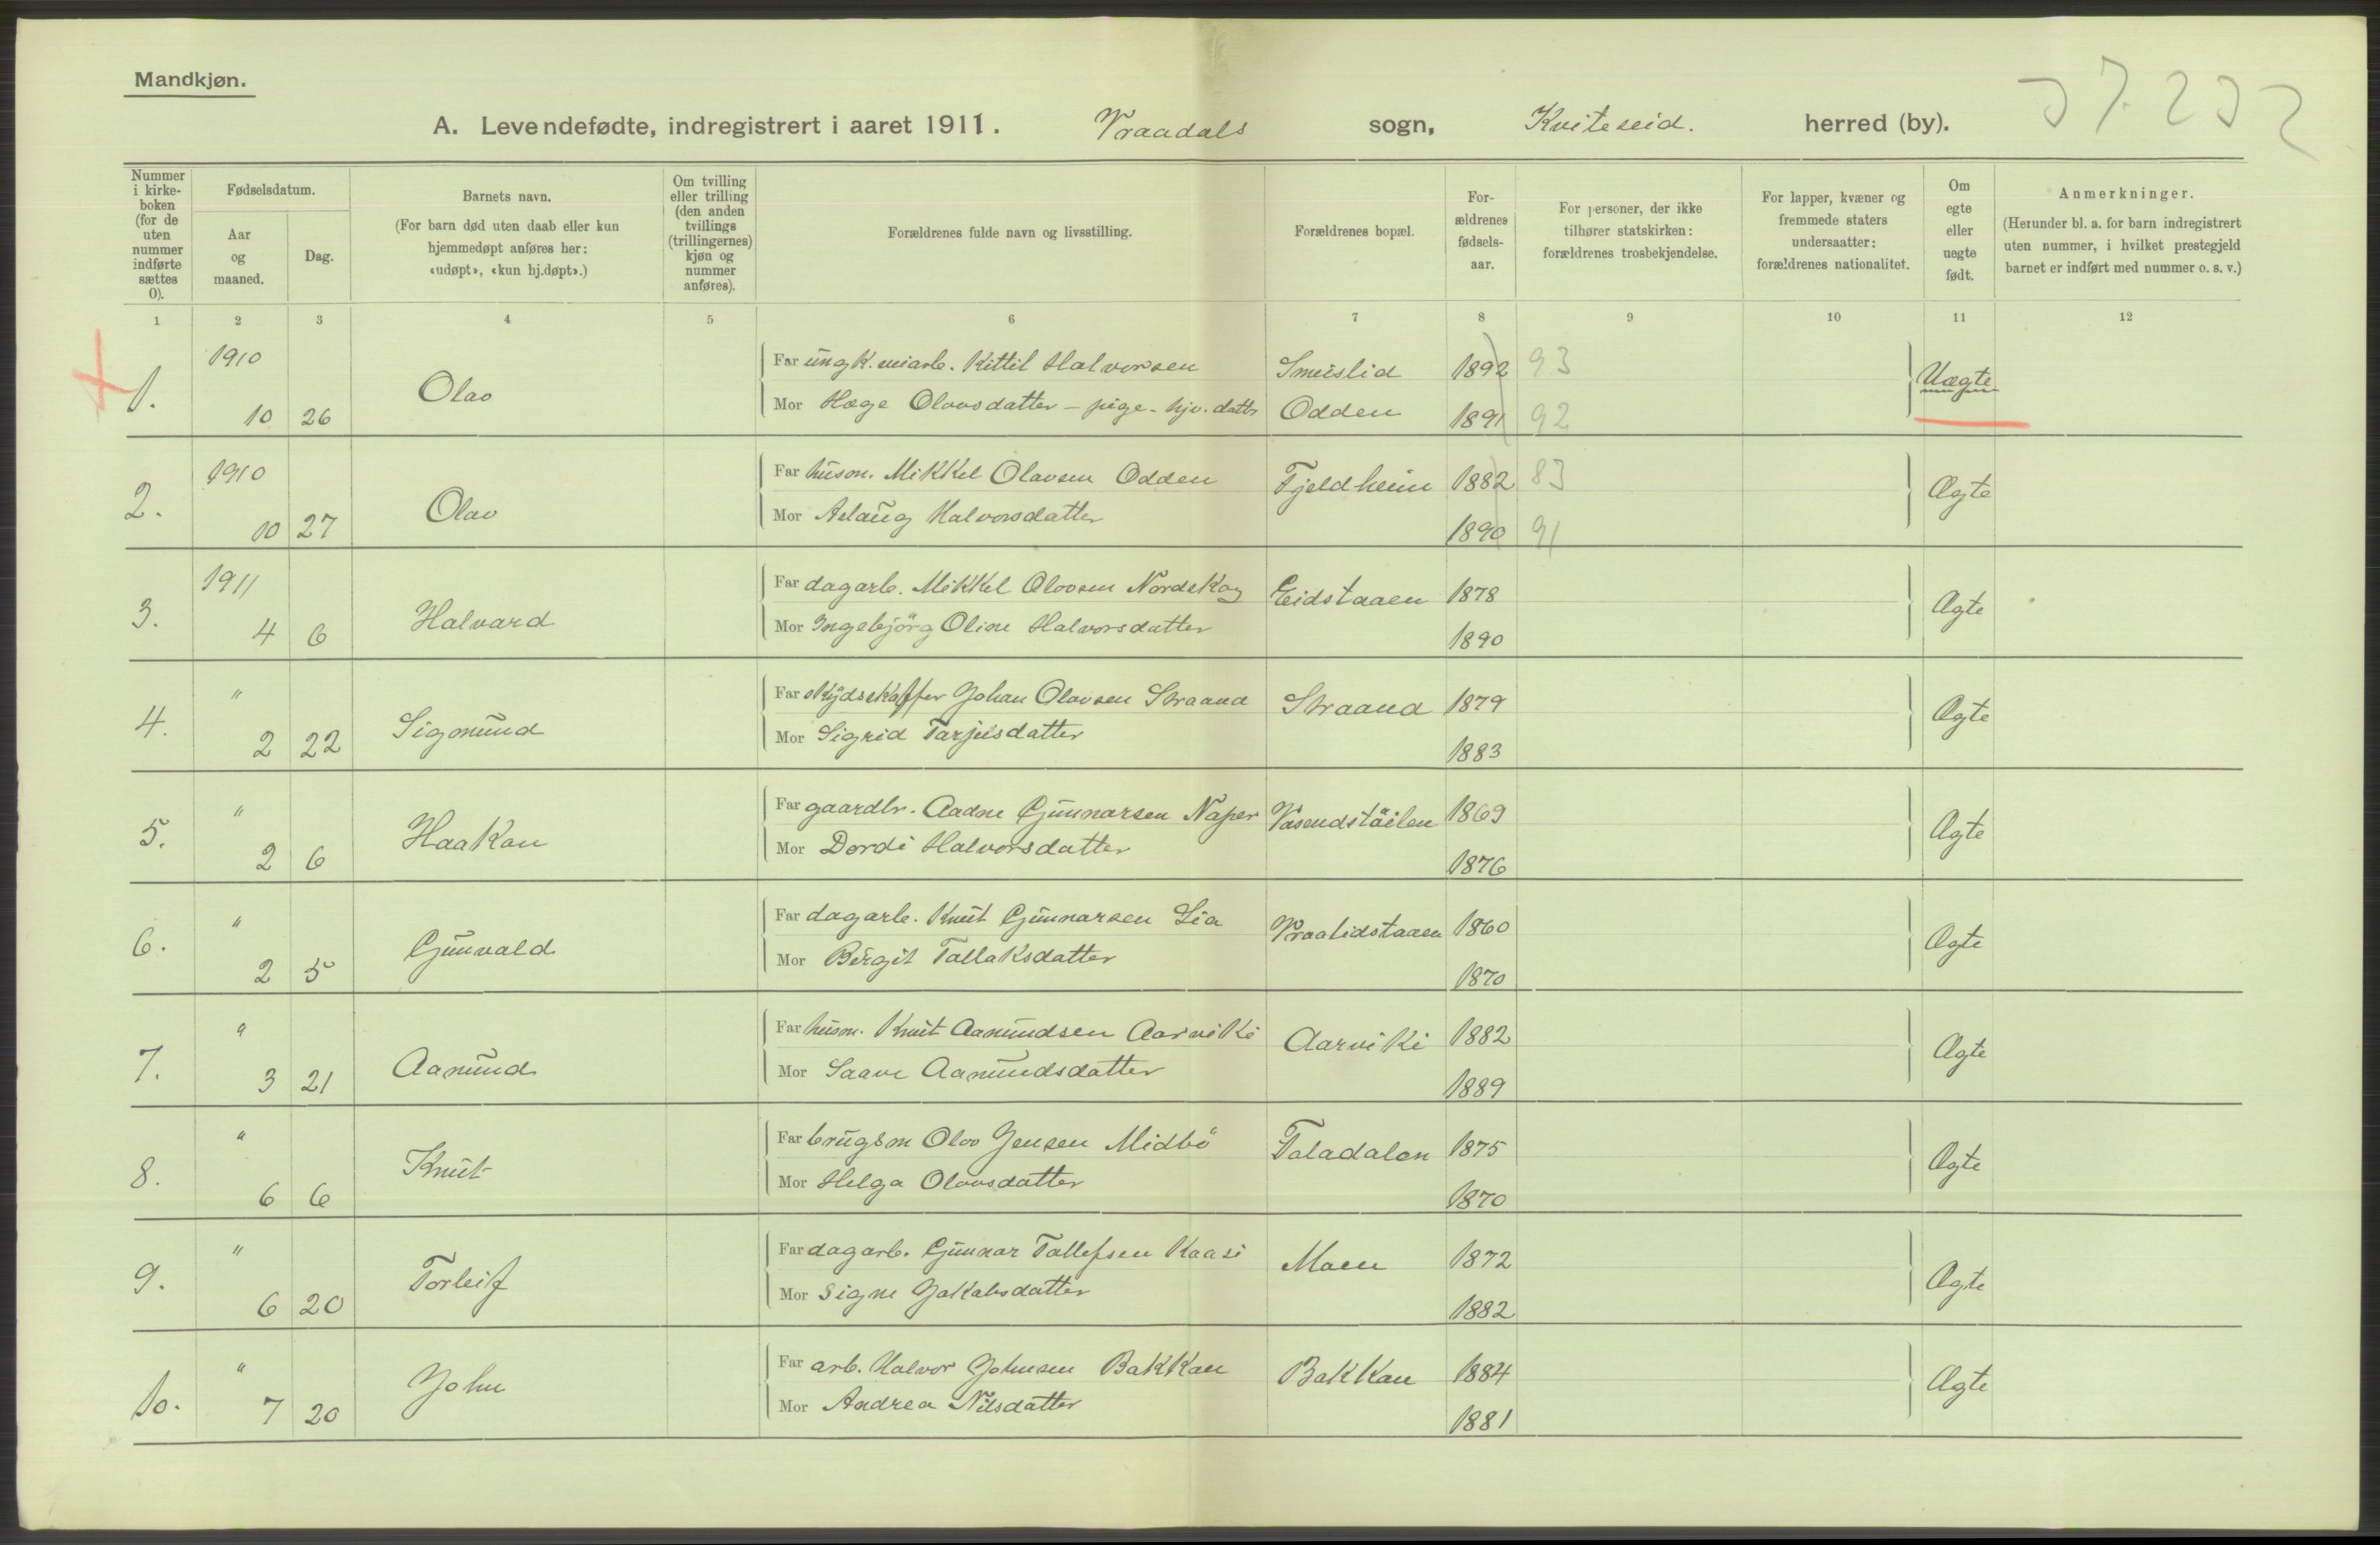 Mandkjøn.
A. Levendefødte, indregistrert i aaret 1911. Vraadals sogn, Kviteseid. herred (by).
Nummer i kirke-boken (for de uten nummer indførte sættes 0).
Fødselsdatum.
Aar og maaned.
Dag.
Barnets navn.
(For barn død uten daab eller kun hjemmedøpt anføres her: «udøpt», «kun hj.døpt».)
Om tvilling eller trilling (den anden tvillings (trillingernes) kjøn og nummer anføres).
Forældrenes fulde navn og livsstilling.
Forældrenes bopæl.
For-ældrenes fødsels-aar.
For personer, der ikke tilhører statskirken: forældrenes trosbekjendelse.
For lapper, kvæner og fremmede staters undersaatter: forældrenes nationalitet.
Om egte eller uegte født.
Anmerkninger.
(Herunder bl. a. for barn indregistrert uten nummer, i hvilket prestegjeld barnet er indført med nummer o. s. v.)
1 2 3 4 5 6 7 8 9 10 11 12
1. 1910 10 26 Olav Far ungk. Kittil Halvorsen Smeislid 1892 93 Uægte
Mor Hæge Olavsdatter - pige - hjv. dattr Odden 1891 92
2. 1910 10 27 Olav Far husm. Mikkel Olavsen Odden Fjeldheim 1882 83 Ægte
Mor Aslaug Halvorsdatter 1890 91
3. 1911 4 6 Halvard Far dagarb. Mikkel Olovsen Nordskog Eidstaaen 1878 Ægte
Mor Ingebjörg Oline Halvorsdatter 1890
4. " 2 22 Sigmund Far skydsskaffer Johan Olavsen Straand Straand 1879 Ægte
Mor Sigrid Tarjeisdatter 1883
5. " 2 6 Haakon Far gaardbr. Aadne Gunnarsen Naper 1869 Ægte
Mor Dordi Halvorsdatter 1876
6. " 2 5 Gunvald Far dagarb. Knut Gunnarsen Lia Vraalidstaaen 1860 Ægte
Mor Birgit Tallaksdatter 1870
7. " 3 21 Aamund Far husm. Knut Aamundsen Aarviki Aarviki 1882 Ægte
Mor Saave Aamundsdatter 1889
8. " 6 6 Knut Far brugsm Olav Jensen Midbö Faladalen 1875 Ægte
Mor Helga Olavsdatter 1870
9. " 6 20 Torleif Far dagarb. Gunnar Tallefsen Kaasi Moen 1872 Ægte
Mor Signe Jakabsdatter 1882
10. " 7 20 John Far arb. Halvor Johnsen Bakkan Bakkan 1884 Ægte
Mor Andrea Nilsdatter 1881